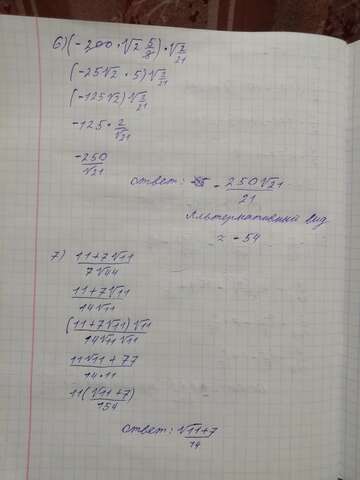 6) (-200 · √2 5/8) · √2/21
(-25√2 · 5) √2/21
(-125√2) √2/21
-125 · 2/√21
-250/√21
ответ: - 250√21/21
Альтернативный вид
≈ -54
7) 11+7√11/7√44
11+7√11/14√11
(11+7√11)√11/14√11√11
11√11+77/14·11
11(√11+7)/154
ответ: √11+7/14